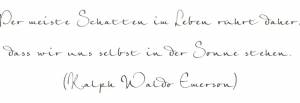 Der meiste Schatten im Leben rührt daher,
dass wir uns selbst in der Sonne stehen.
(Ralph Waldo Emerson)